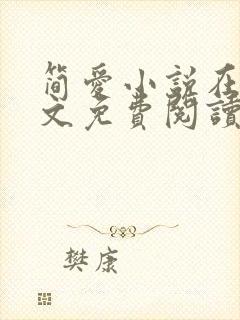 简爱小说在
文免费阅读
樊康